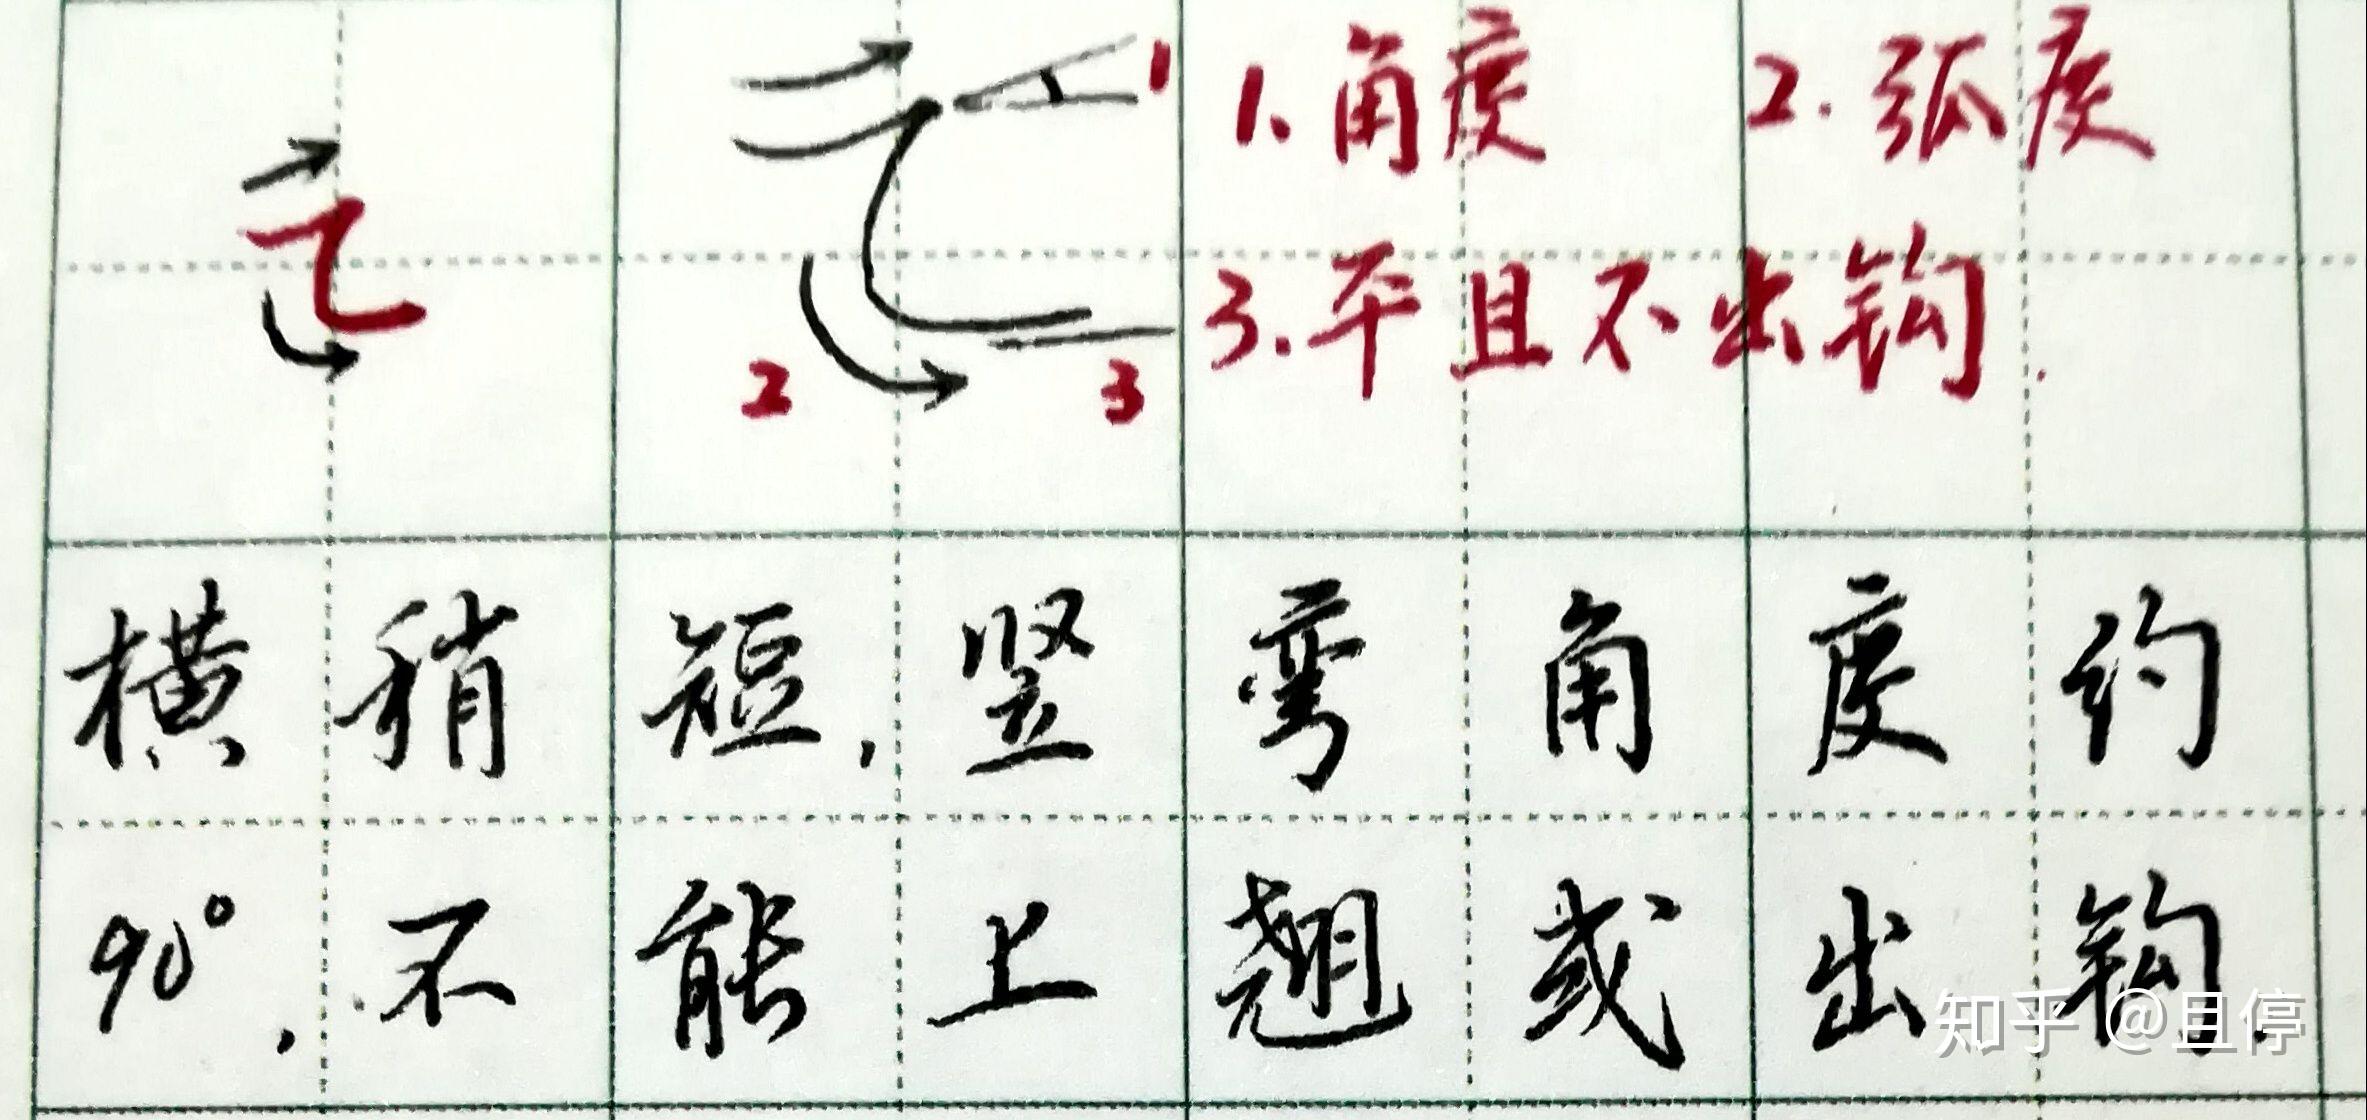 1 1.角度 2.弧度
2 3 3.平且不出钩.
横稍短,竖弯角度约
90°,不能上翘或出钩.
知乎 @且停